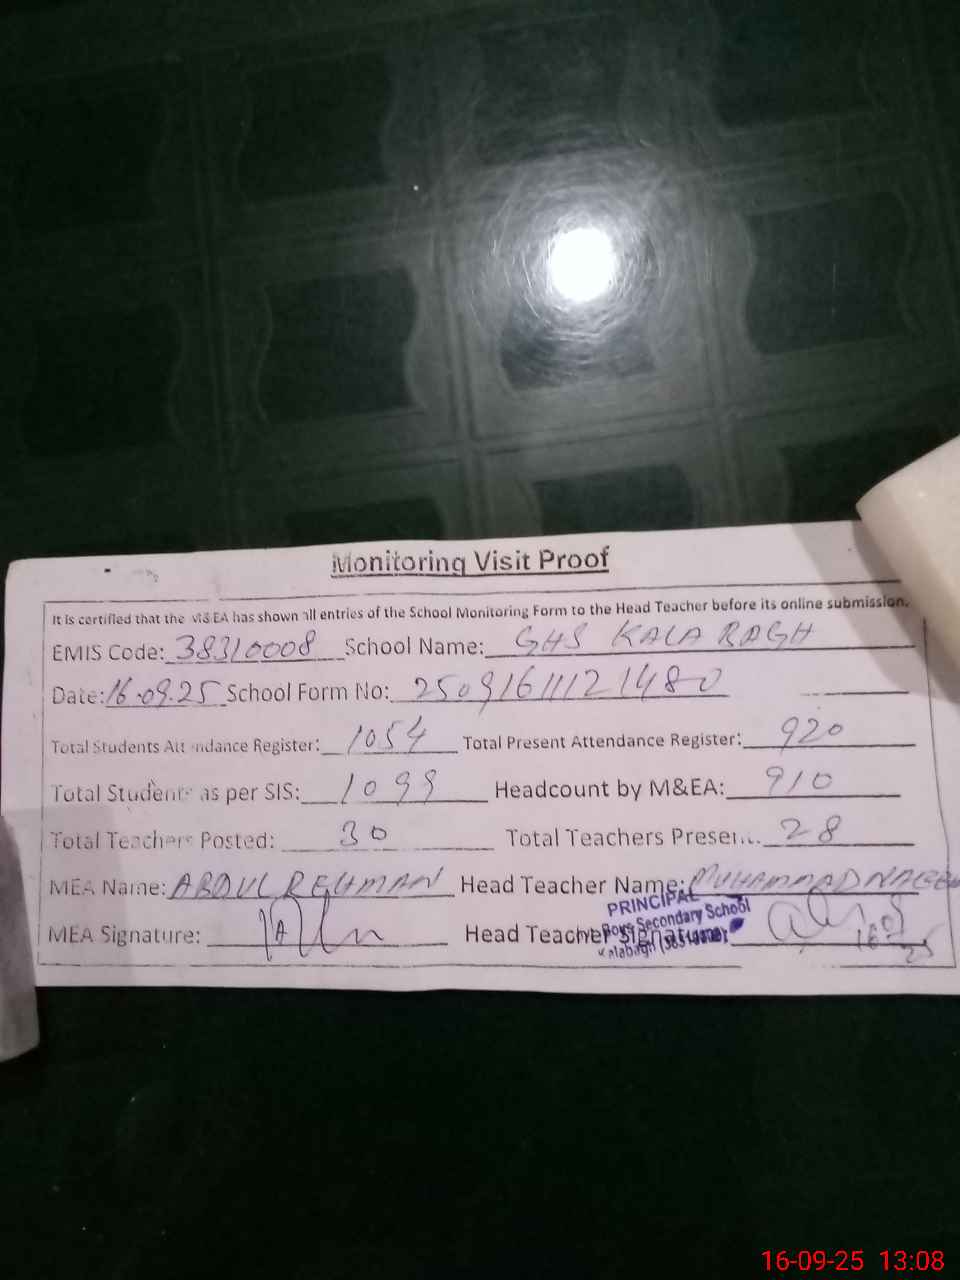 Monitoring Visit Proof
It is certified that the M&EA has shown all entries of the School Monitoring Form to the Head Teacher before its online submission.
EMIS Code: 38310008 School Name: GHS KALA BAGH
Date: 16.09.25 School Form No: 250916111121480
Total Students Attendance Register: 1054 Total Present Attendance Register: 920
Total Students as per SIS: 1099 Headcount by M&EA: 910
Total Teachers Posted: 30 Total Teachers Present: 28
MEA Name: ABDUL REHMAN Head Teacher Name: MUHAMMAD NAEEM
PRINCIPAL
Boys Secondary School
Kalabagh
MEA Signature: Head Teacher Signature:
16-09-25 13:08